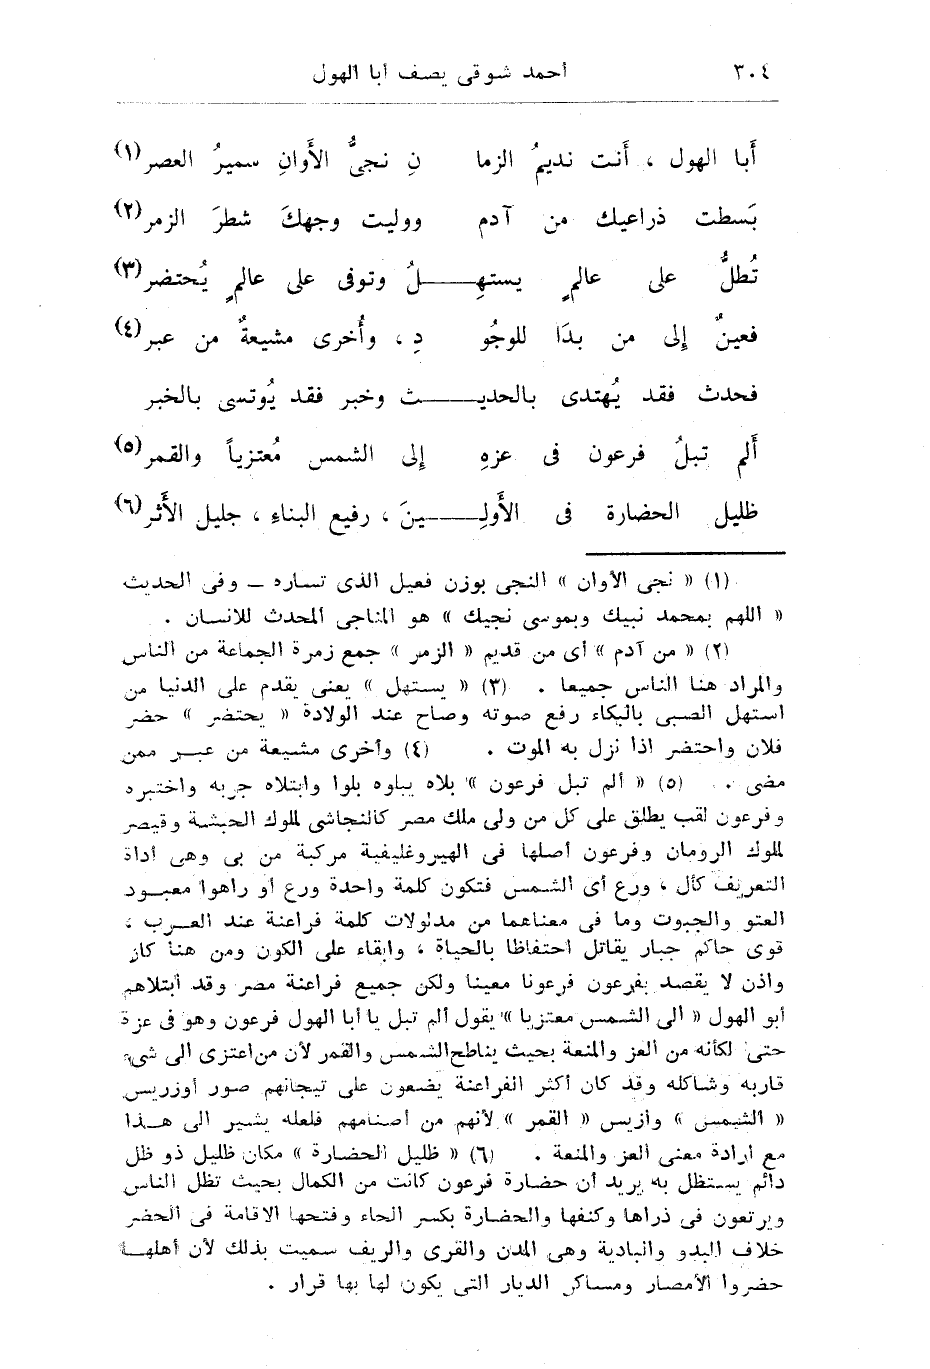 ٣٠٤ أحمد شوقى يصف أبا الهول
أَبا الهول ، أَنت نديمُ الزما نِ نجىُّ الأَوانِ سميرُ العصر (١)
بَسطت ذراعيك من آدم ووليت وجهكَ شطرَ الزمر (٢)
تُطلُّ على عالمٍ يستهِـلُ وتوفى على عالمٍ يُحتضر (٣)
فعينٌ إلى من بدَا للوجُو دِ ، وأُخرى مشيعةٌ من عبر (٤)
فحدث فقد يُهتدى بالحديـث وخبر فقد يُوتسى بالخبر
أَلم تبلُ فرعون فى عزهِ إلى الشمس مُعتزياً والقمر (٥)
ظليل الحضارة فى الأَولِـينَ ، رفيع البناءِ ، جليل الأَثر (٦)
(١) « نجى الأوان » النجى بوزن فعيل الذى تساره ــ وفى الحديث
« اللهم بمحمد نبيك وبموسى نجيك » هو المناجى المحدث للانسان .
(٢) « من آدم » أى من قديم « الزمر » جمع زمرة الجماعة من الناس
والمراد هنا الناس جميعا . (٣) « يستهل » يعنى يقدم على الدنيا من
استهل الصبى بالبكاء رفع صوته وصاح عند الولادة « يحتضر » حضر
فلان واحتضر اذا نزل به الموت . (٤) وأخرى مشيعة من عبـر ممن
مضى . (٥) « ألم تبل فرعون » بلاه يبلوه بلوا وابتلاه جربه واختبره
وفرعون لقب يطلق على كل من ولى ملك مصر كالنجاشى لملوك الحبشة وقيصر
لملوك الرومان وفرعون أصلها فى الهيروغليفية مركبة من بى وهى أداة
التعريف كأل ، ورع أى الشمس فتكون كلمة واحدة ورع أو راهوا معبـود
العتو والجبوت وما فى معناهما من مدلولات كلمة فراعنة عند العـرب ،
قوى حاكم جبار يقاتل احتفاظا بالحياة ، وابقاء على الكون ومن هنا كان
واذن لا يقصد بفرعون فرعونا معينا ولكن جميع فراعنة مصر وقد أبتلاهم
أبو الهول « الى الشمس معتزيا » يقول ألم تبل يا أبا الهول فرعون وهو فى عزة
حتى لكأنه من العز والمنعة بحيث يناطح الشمس والقمر لأن من اعتزى الى شىء
قاربه وشاكله وقد كان أكثر الفراعنة يضعون على تيجانهم صور أوزريس
« الشمس » وأزيس « القمر » لأنهم من أصنامهم فلعله يشير الى هـذا
مع ارادة معنى العز والمنعة . (٦) « ظليل الحضارة » مكان ظليل ذو ظل
دائم يستظل به يريد أن حضارة فرعون كانت من الكمال بحيث تظل الناس
ويرتعون فى ذراها وكنفها والحضارة بكسر الحاء وفتحها الاقامة فى الحضر
خلاف البدو والبادية وهى المدن والقرى والريف سميت بذلك لأن أهلهـا
حضروا الأمصار ومساكن الديار التى يكون لها بها قرار .